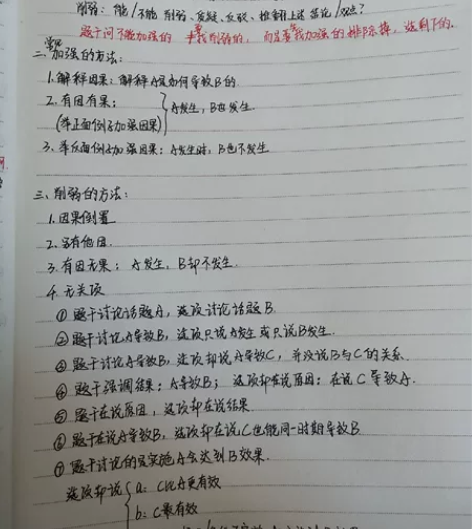 削弱：能/不能 削弱、质疑、反驳、推翻上述 结论/观点？
题干问不能加强的 要找削弱的，而是要找加强的排除掉，选剩下的。
二、加强的方法：
1. 解释因果：解释A是如何导致B的
2. 有因有果：
(举正面例子加强因果)
A发生，B也发生
3. 举反面例子加强因果：A发生时，B也不发生
三、削弱的方法：
1. 因果倒置
2. 另有他因.
3. 有因无果：A发生，B却不发生.
4. 无关项
① 题干讨论话题A，选项讨论话题B.
② 题干讨论A导致B，选项只说A发生或只说B发生.
③ 题干讨论A导致B，选项却说A导致C，并没说B与C的关系.
④ 题干强调结果：A导致B；选项却在说原因：在说C导致A.
⑤ 题干在说原因，选项却在说结果.
⑥ 题干在说A导致B，选项却在说C也能同一时期导致B
⑦ 题干讨论的是实施A会达到B效果.
选项却说
a: C比A更有效
b: C最有效